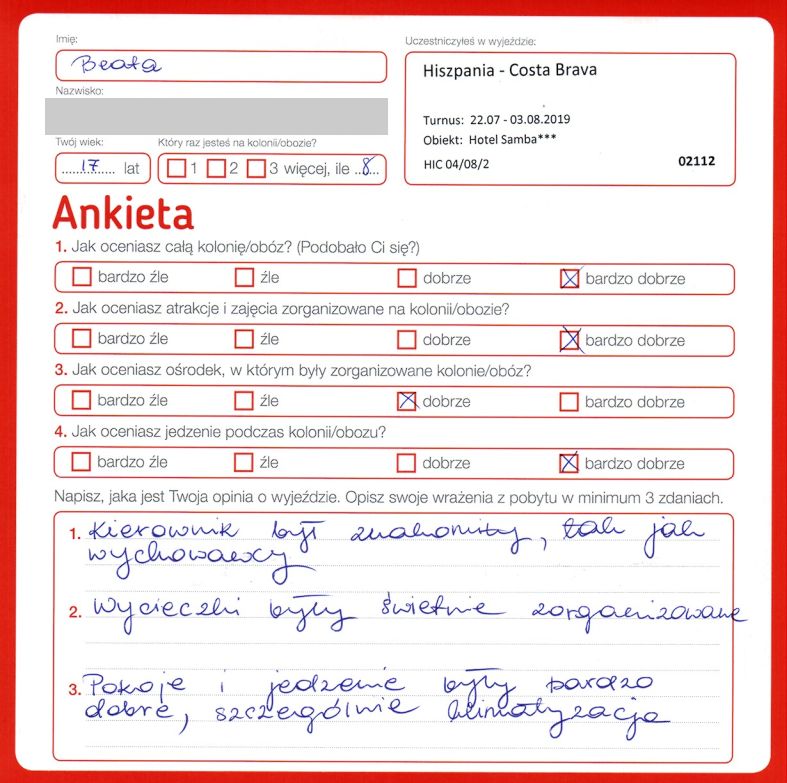 Imię:
Beata
Nazwisko:
Twój wiek:
17 lat
Który raz jesteś na kolonii/obozie?
1 2 3 więcej, ile 8
Uczestniczyłeś w wyjeździe:
Hiszpania - Costa Brava
Turnus: 22.07 - 03.08.2019
Obiekt: Hotel Samba***
HIC 04/08/2 02112
Ankieta
1. Jak oceniasz całą kolonię/obóz? (Podobało Ci się?)
bardzo źle źle dobrze bardzo dobrze
2. Jak oceniasz atrakcje i zajęcia zorganizowane na kolonii/obozie?
bardzo źle źle dobrze bardzo dobrze
3. Jak oceniasz ośrodek, w którym były zorganizowane kolonie/obóz?
bardzo źle źle dobrze bardzo dobrze
4. Jak oceniasz jedzenie podczas kolonii/obozu?
bardzo źle źle dobrze bardzo dobrze
Napisz, jaka jest Twoja opinia o wyjeździe. Opisz swoje wrażenia z pobytu w minimum 3 zdaniach.
1. Kierownik był znakomity, tak jak
wychowawcy
2. Wycieczki były świetnie zorganizowane
3. Pokoje i jedzenie były bardzo
dobre, szczególnie klimatyzacja